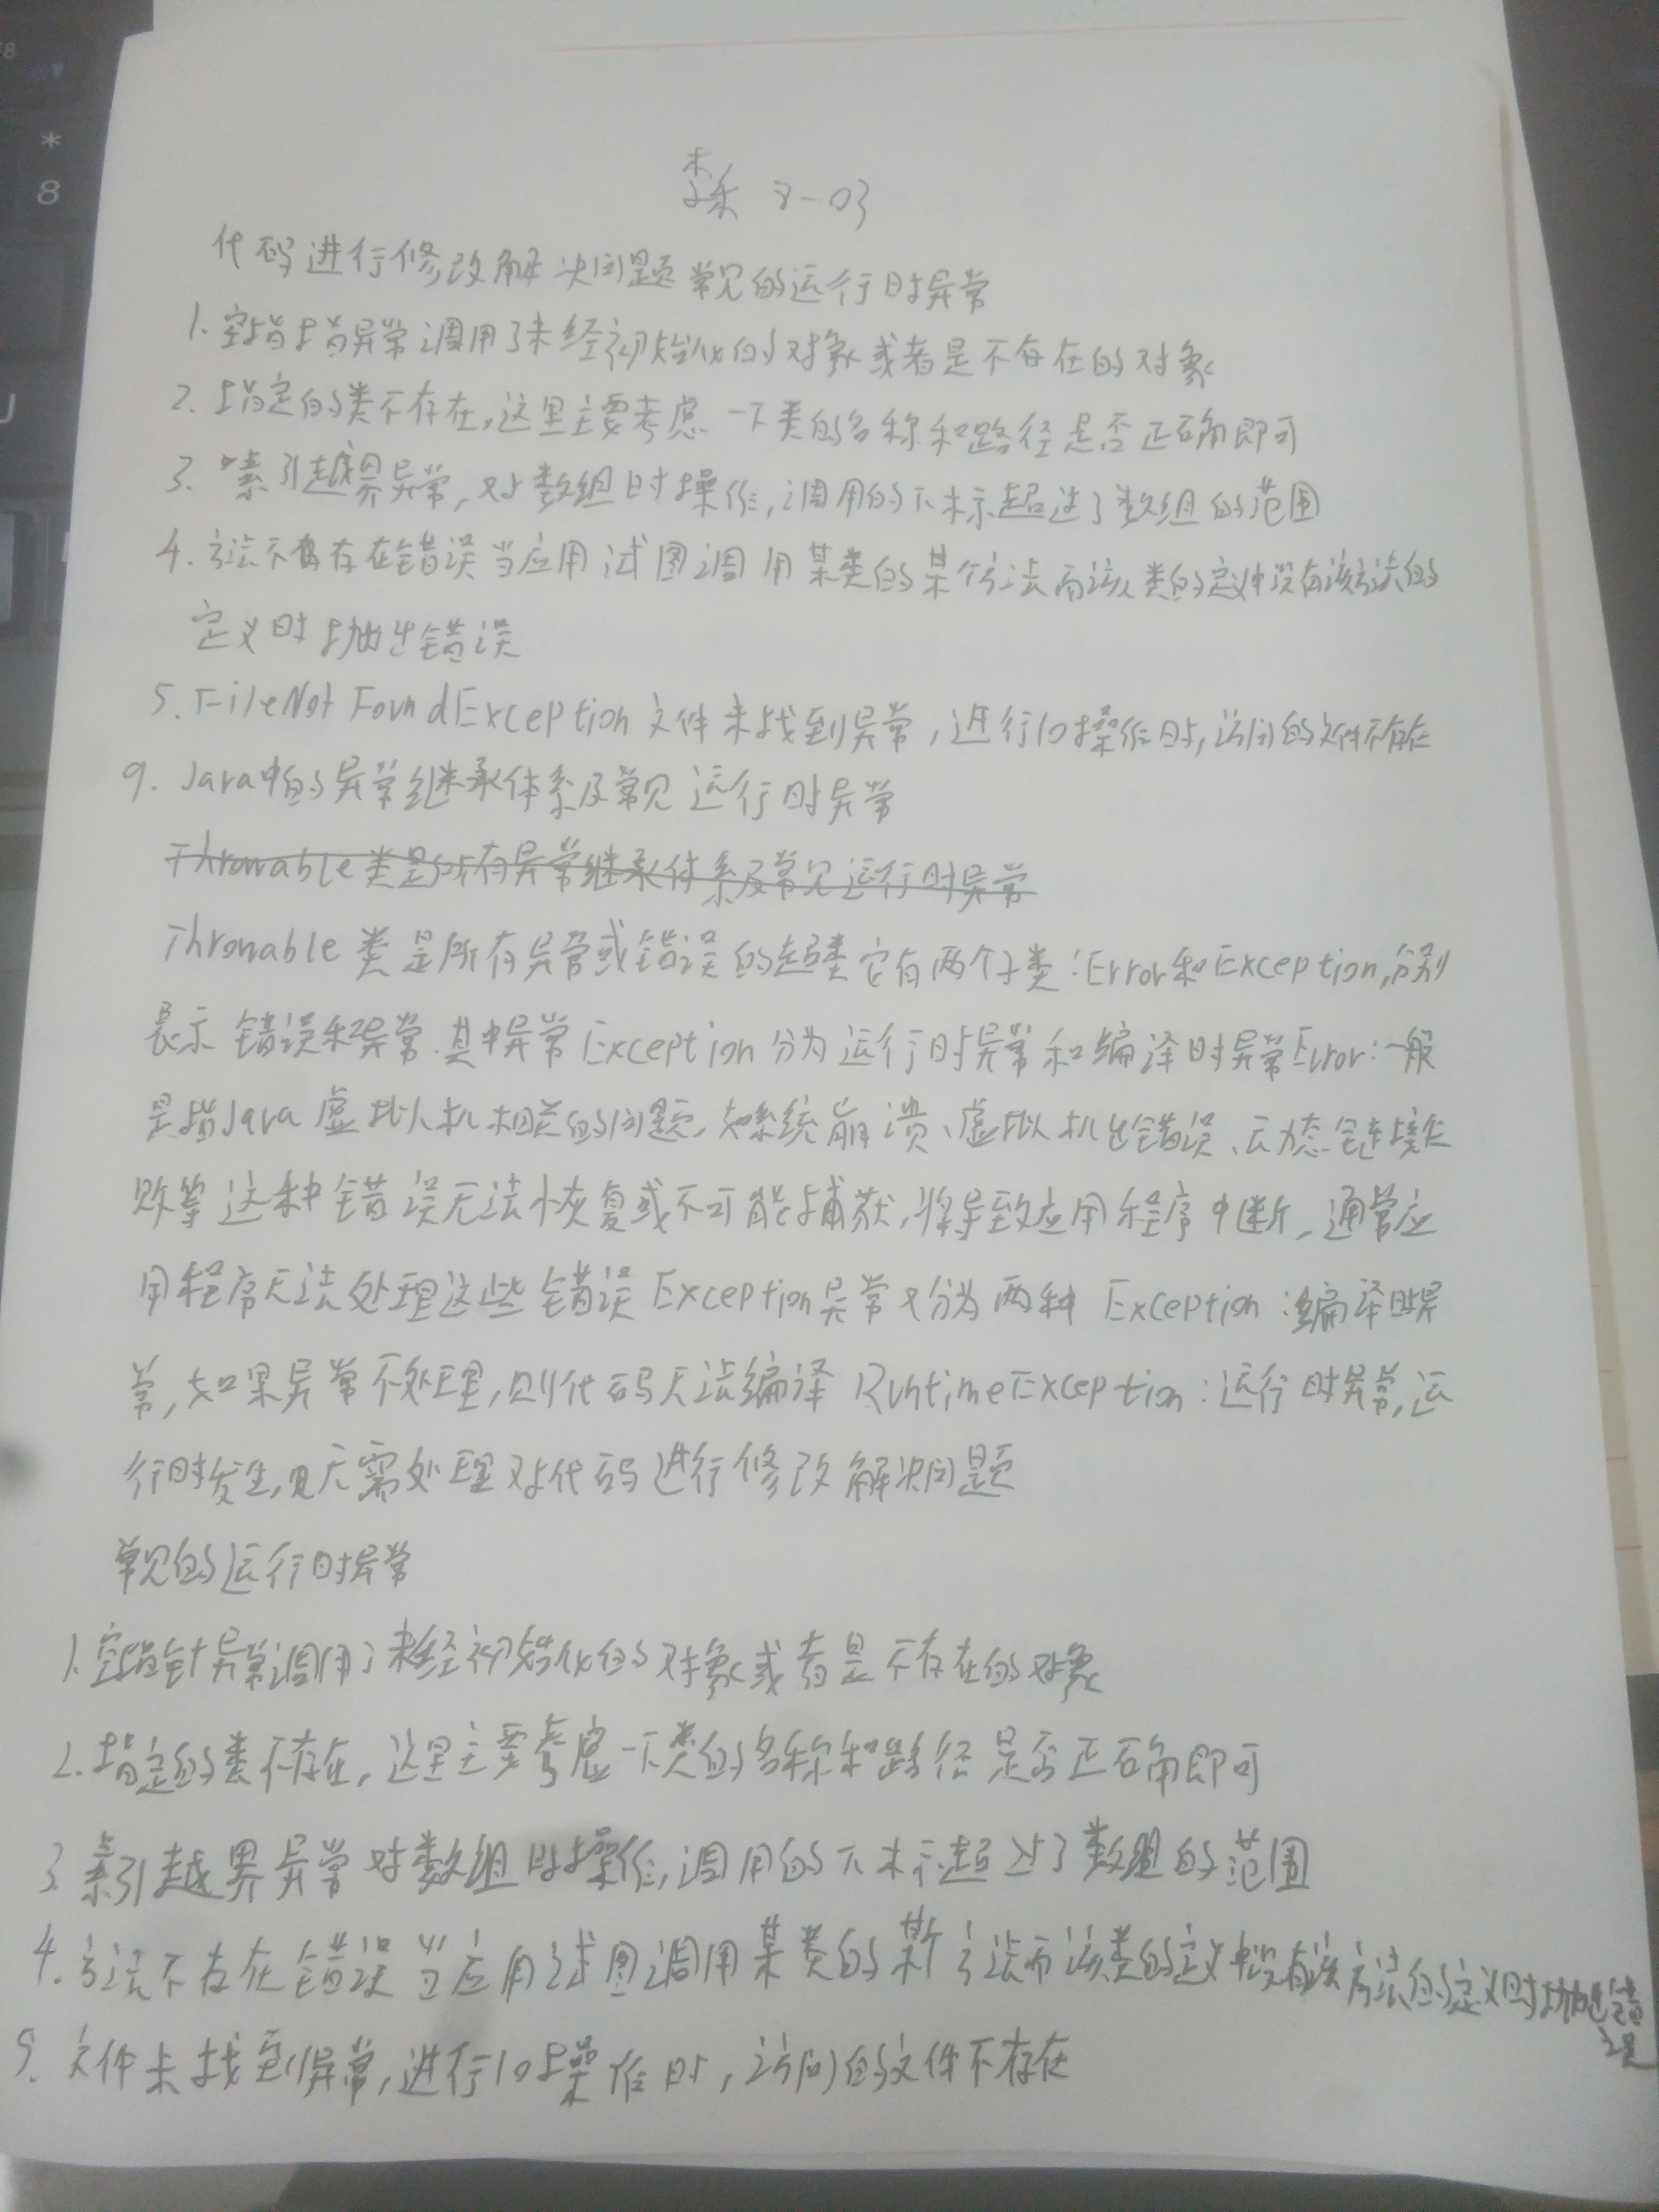 8-03
代码进行修改解决问题常见的运行时异常
1. 空指指异常调用了未经初始化的对象或者是不存在的对象
2. 指定的类不存在,这里主要考虑一下类的名称和路径是否正确即可
3. 索引越界异常,对数组时操作,调用的下标超过了数组的范围
4. 方法不存在错误当应用试图调用某类的某个方法而该类的定义中没有该方法的
定义时抛出错误
5. FileNotFoundException 文件未找到异常,进行IO操作时,访问的文件不存在
9. Java中的异常继承体系及常见运行时异常
Throwable 类是所有异常继承体系及常见运行时异常
Throwable 类是所有异常或错误的超类它有两个子类:Error和Exception,分别
表示错误和异常.其中异常Exception分为运行时异常和编译时异常Error:一般
是指Java虚拟机相关的问题,如系统崩溃、虚拟机出错误、动态链接失
败等这种错误无法恢复或不可能捕获,将导致应用程序中断,通常应
用程序无法处理这些错误Exception异常又分为两种 Exception:编译时异
常,如果异常不处理,则代码无法编译 RuntimeException:运行时异常,运
行时发生,无需处理对代码进行修改解决问题
常见的运行时异常
1. 空指针异常调用了未经初始化的对象或者是不存在的对象
2. 指定的类不存在,这里主要考虑一下类的名称和路径是否正确即可
3. 索引越界异常对数组时操作,调用的下标超过了数组的范围
4. 方法不存在错误当应用试图调用某类的某个方法而该类的定义中没有该方法的定义时抛出错
误
5. 文件未找到异常,进行IO操作时,访问的文件不存在